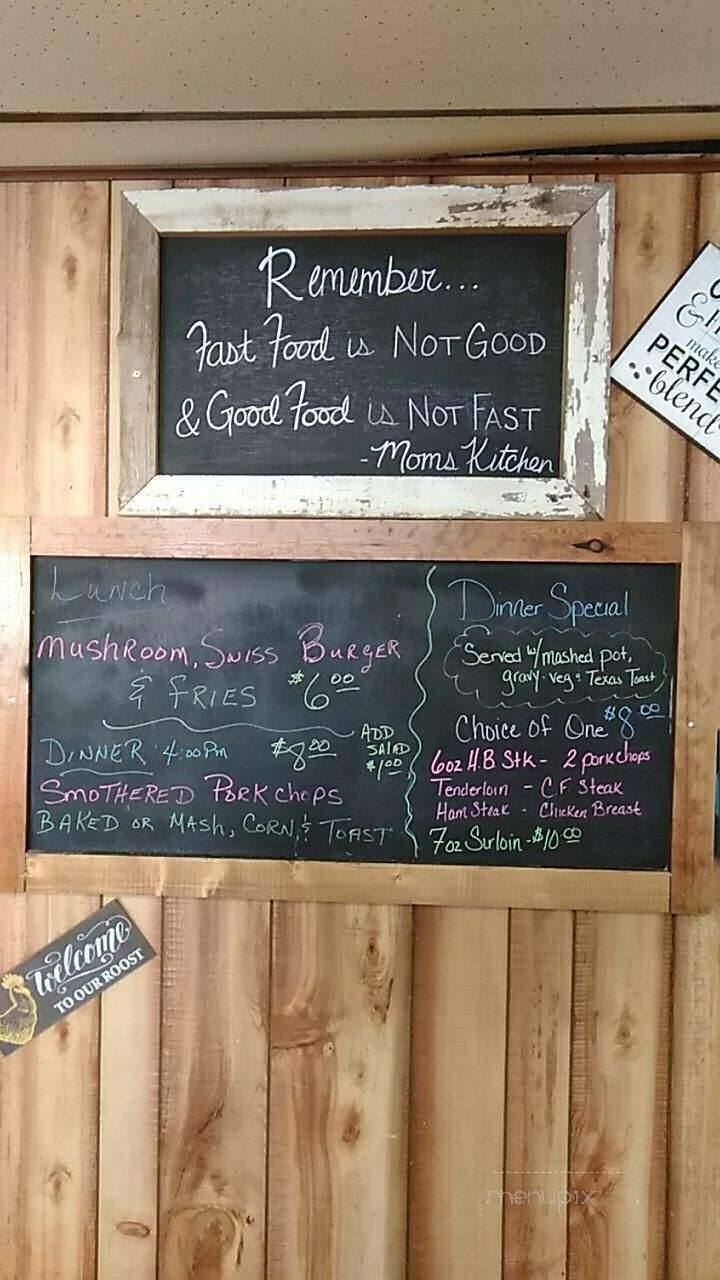 Remember...
Fast Food is NOT GOOD
& Good Food is NOT FAST
-Moms Kitchen
&
make
PERFE
blend
Lunch
MUSHROOM, SWISS BURGER
& FRIES $6.00
DINNER 4:00 Pm $8.00
ADD
SALAD
$1.00
SMOTHERED PORK chops
BAKED OR MASH, CORN, & TOAST
Dinner Special
Served w/mashed pot,
gravy-veg & Texas Toast
Choice of One $8.00
6oz H.B Stk - 2 porkchops
Tenderloin - C.F Steak
Ham Steak - Chicken Breast
7oz Sirloin - $10.00
Welcome
TO OUR ROOST
menupix